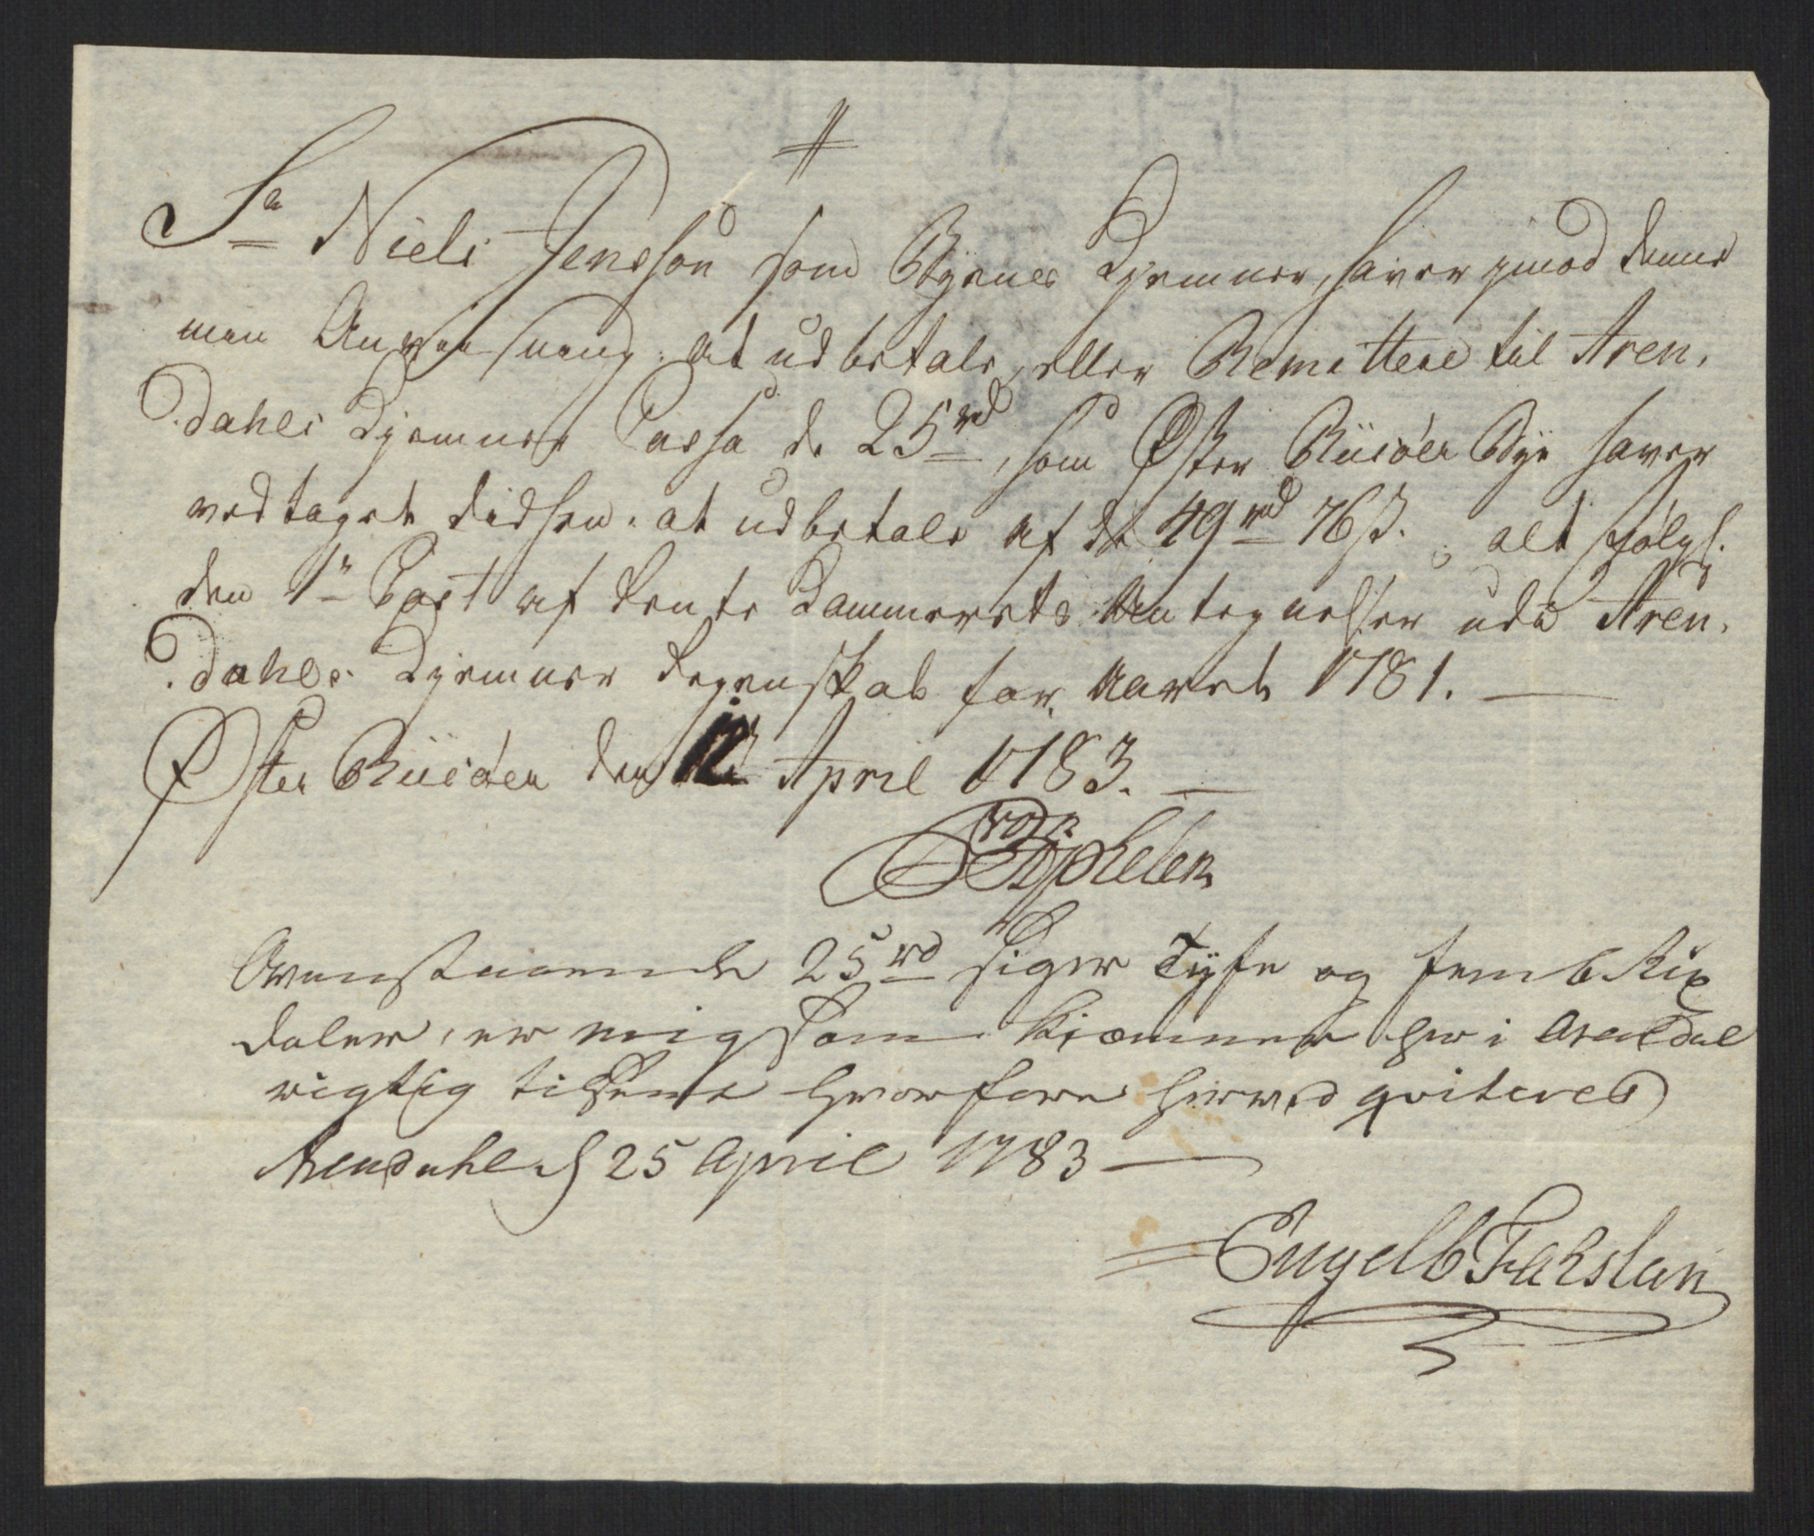 Sr Niels Jensson som Byenes Kjemner, haver imod denne
min Anviisning at udbetale, eller Remittere til Aren-
dahls Kjemner Cassa de 25 rd, som Øster Riisøer Bye haver
vedtaget didhen at udbetale af de 49 rd 76 s. alt følgl.
den 1te Post af Rente Kammerets Antegnelser udi Aren-
dahls Kjemner Regenskab for Aaret 1781.
Øster Riisøer den April 1783.
Ovenstaaende 25 rd siger Tyfe og fem Rix
daler, er mig som Kiæmner her i Arendal
rigtig tilsendt hvorfore herved qviteres
Arendahl d 25 April 1783
Engelb